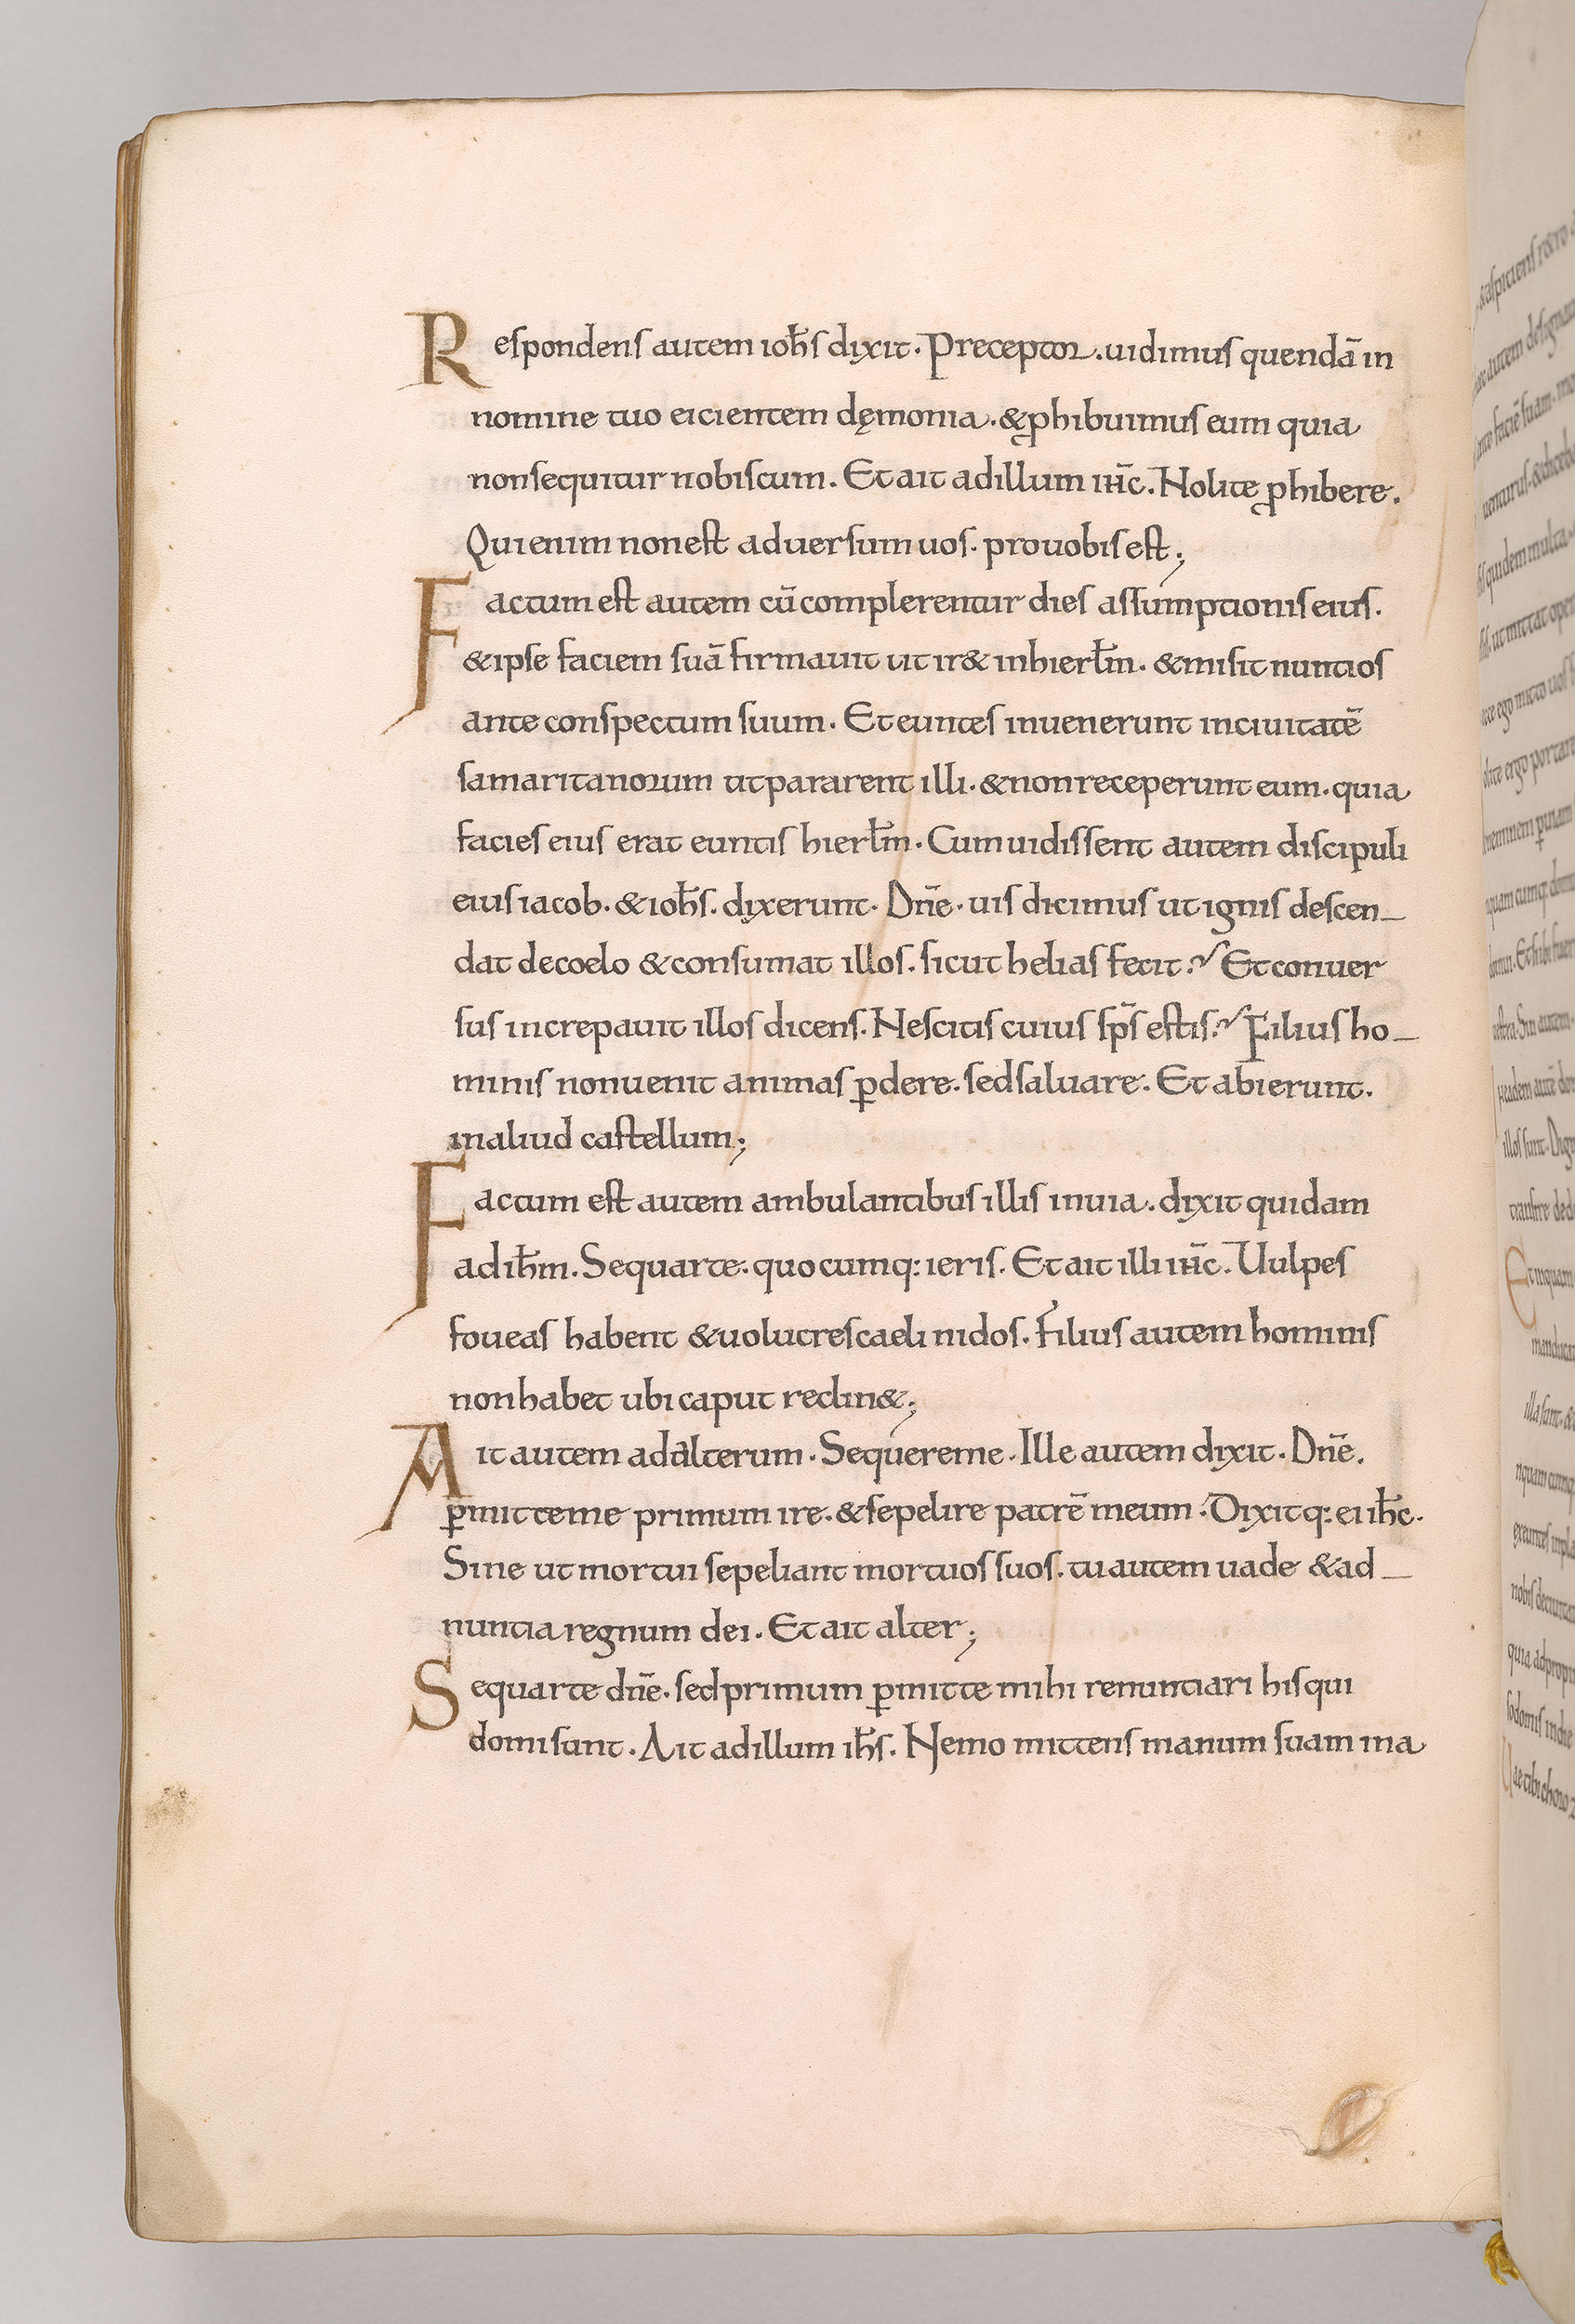 Respondens autem ioħs dixit. Preceptor. uidimus quendā in
nomine tuo eicientem dęmonia. & ꝓhibuimus eum quia
non sequitur nobiscum. Et ait ad illum iħ̄c. Nolite ꝓhibere.
Qui enim non est adversum uos. pro uobis est;
Factum est autem cū complerentur dies assumptionis eius.
& ipse faciem suā firmauit ut ir& in hierłm. & misit nuntios
ante conspectum suum. Et euntes inuenerunt in ciuitatē
samaritanorum ut pararent illi. & non receperunt eum. quia
facies eius erat euntis hierłm. Cum uidissent autem discipuli
eius iacob. & ioħs. dixerunt. Dn̄e. uis dicimus ut ignis descen-
dat de coelo & consumat illos. sicut helias fecit? Et conuer
sus increpauit illos dicens. Nescitis cuius sp̄s estis? Filius ho-
minis non uenit animas ꝑdere. sed saluare. Et abierunt.
in aliud castellum;
Factum est autem ambulantibus illis in uia. dixit quidam
ad iħm. Sequar te. quocumq: ieris. Et ait illi iħ̄c. Uulpes
foueas habent & uolucres caeli nidos. Filius autem hominis
non habet ubi caput reclin&;
Ait autem ad alterum. Sequere me. Ille autem dixit. Dn̄e.
ꝑmitte me primum ire. & sepelire patrē meum. Dixitq: ei iħc.
Sine ut mortui sepeliant mortuos suos. tu autem uade & ad-
nuntia regnum dei. Et ait alter;
Sequar te dn̄e. sed primum ꝑmitte mihi renuntiari his qui
domi sunt. Ait ad illum iħs. Nemo mittens manum suam in a